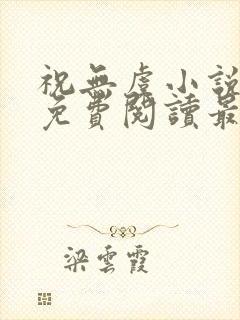 祝無虞小說
免費閱讀最
梁雲霞